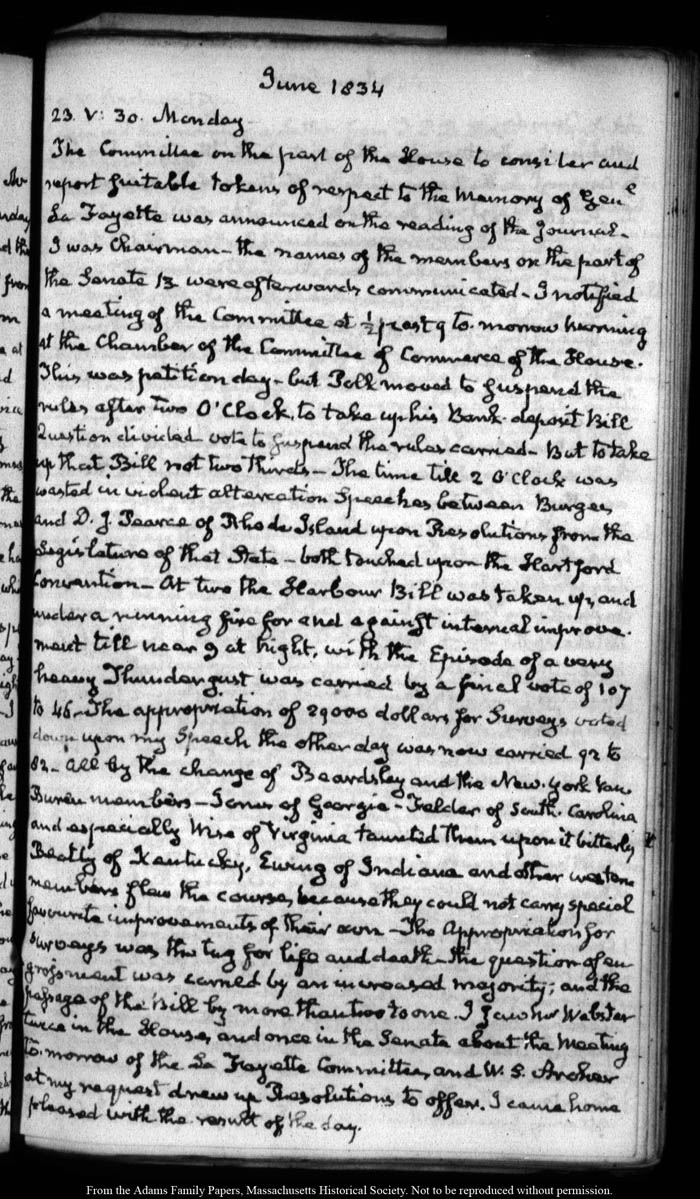 June 1834
23. V: 30. Monday
The Committee on the part of the House to consider and
report suitable tokens of respect to the Memory of Gen^e
La Fayette was announced on the reading of the Journal.
I was Chairman - the names of the members on the part of
the Senate 13 were afterwards communicated - I notified
a meeting of the Committee at ½ past 9 to-morrow morning
at the Chamber of the Committee of Commerce of the House.
This was petition day - but Polk moved to suspend the
rules after two O'Clock, to take up his Bank-deposit Bill
Question divided vote to suspend the rules carried - But to take
up that Bill not two thirds - The time till 2 O'Clock was
wasted in violent altercation Speeches between Burges,
and D. J. Pearce of Rhode Island upon Resolutions from the
Legislature of that State - both touched upon the Hartford
Convention - At two the Harbour Bill was taken up, and
under a running fire for and against internal improve-
ment till near 9 at Night, with the Episode of a very
heavy Thunder gust was carried by a final vote of 107
to 46 - The appropriation of 29000 dollars for Surveys voted
down upon my Speech the other day was now carried 92 to
82 - all by the change of Beardsley and the New-York Van
Buren members - Jones of Georgia - Felder of South-Carolina
and especially Wise of Virginia taunted them upon it bitterly
Beatty of Kentucky, Ewing of Indiana and other western
members flew the course, because they could not carry special
favourite improvements of their own - The Appropriation for
surveys was the tug for life and death - the question of en-
grossment was carried by an increased majority; and the
passage of the Bill by more than two to one. I saw Mr Webster
twice in the House, and once in the Senate about the Meeting
to-morrow of the La Fayette Committee, and W. S. Archer
at my request drew up Resolutions to offer. I came home
pleased with the result of the day.
From the Adams Family Papers, Massachusetts Historical Society. Not to be reproduced without permission.